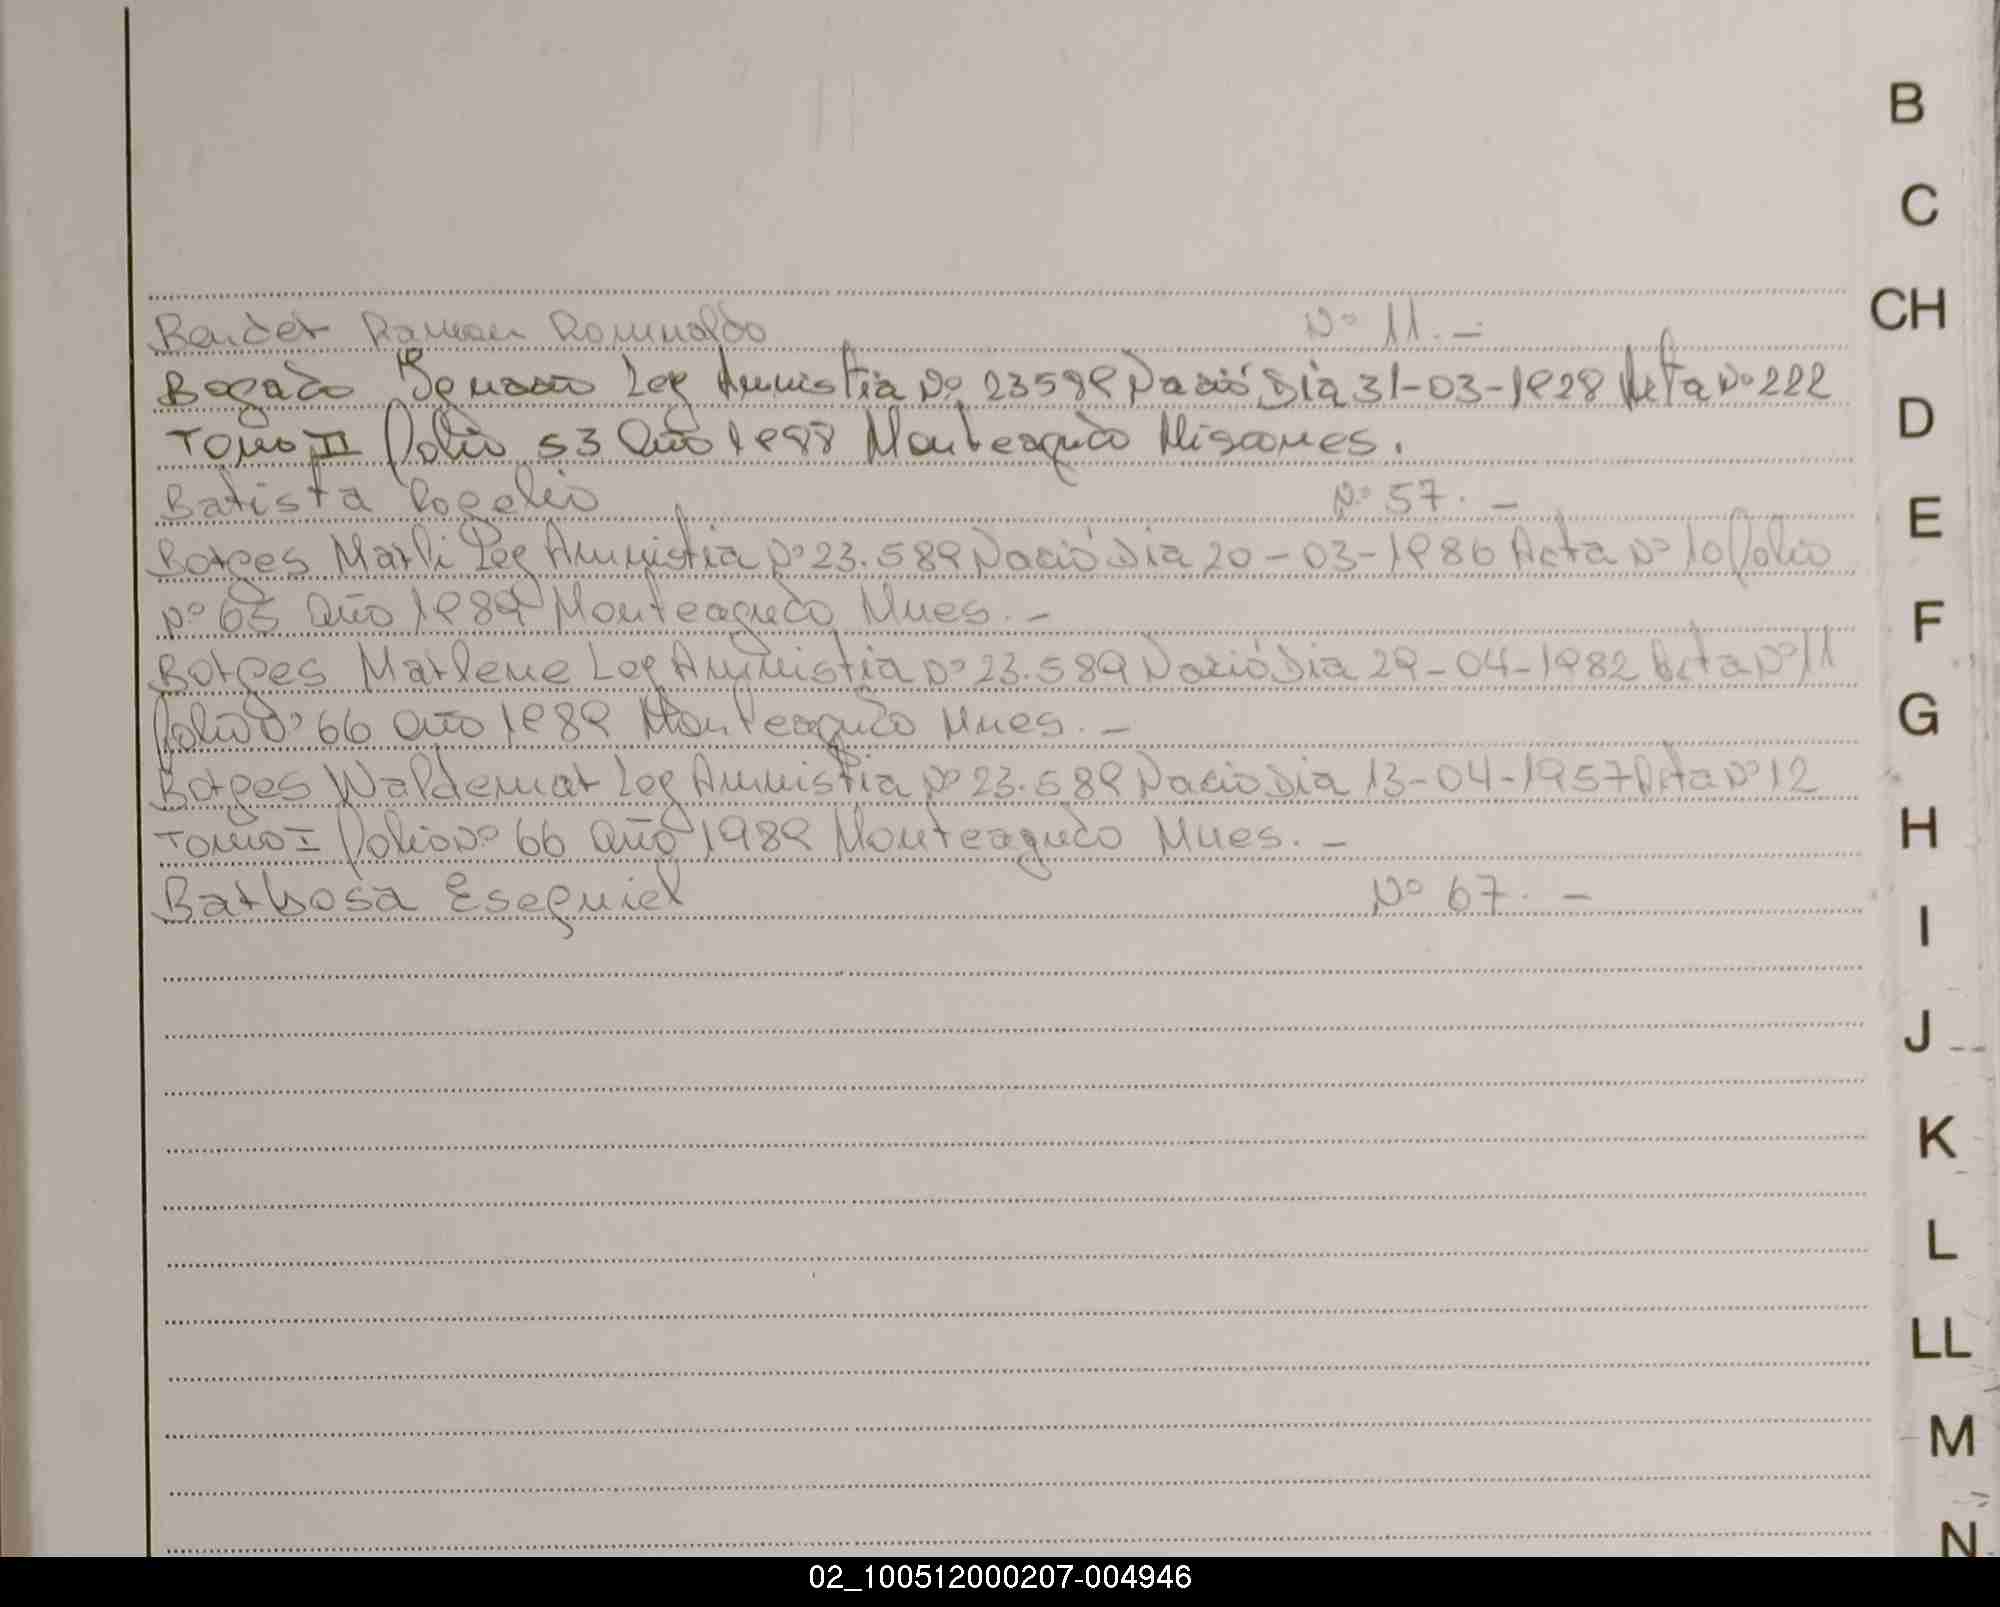 Bender Ramon Romualdo Nº 11.-
Bogado Leg Amnistia Nº 23589 Nació Dia 31-03-1928 Acta Nº 222
Tomo II folio 53 Año 1988 Monteagudo Misiones.
Batista Rogelio Nº 57.-
Borges Marli Leg Amnistia Nº 23.589 Nació Dia 20-03-1986 Acta Nº 10 folio
Nº 65 Año 1989 Monteagudo Mnes.-
Borges Marlene Leg Amnistia Nº 23.589 Nació Dia 29-04-1982 Acta Nº 11
folio Nº 66 Año 1989 Monteagudo Mnes.-
Borges Waldemar Leg Amnistia Nº 23.589 Nacio Dia 13-04-1957 Acta Nº 12
Tomo I folio Nº 66 Año 1989 Monteagudo Mnes.-
Barbosa Esequiel Nº 67.-
B
C
CH
D
E
F
G
H
I
J
K
L
LL
M
N
02_100512000207-004946